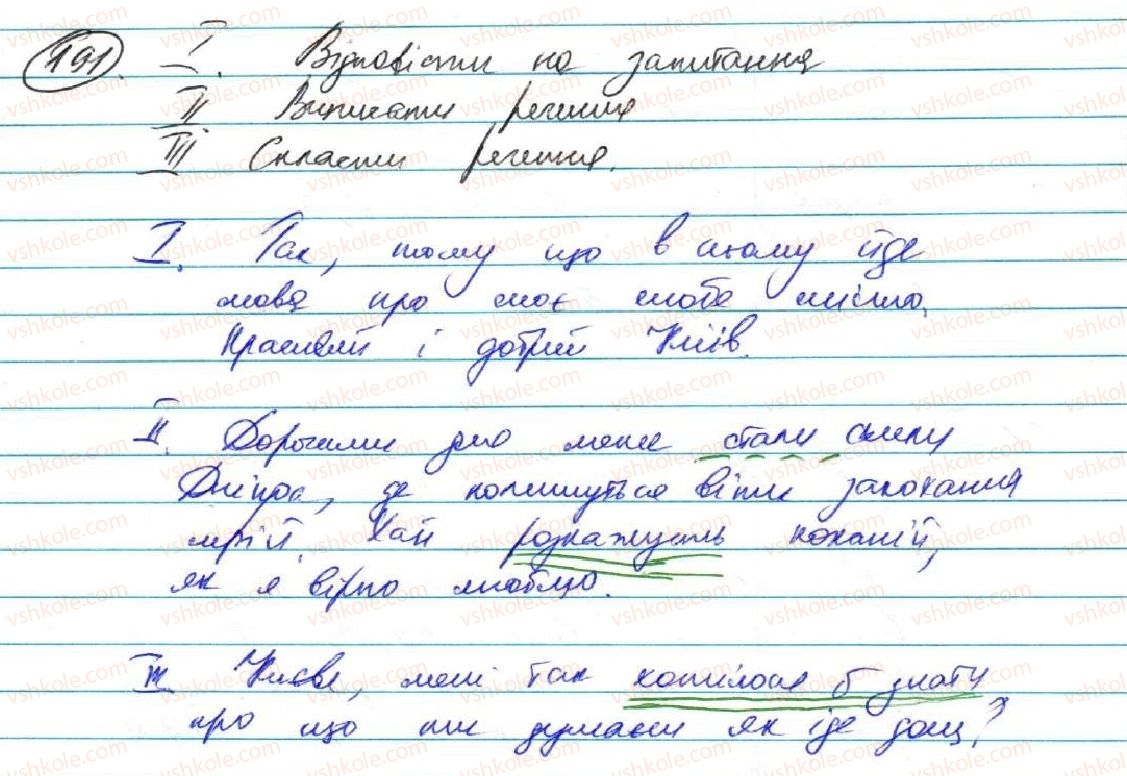 191. I. Відповісти на запитання
II Виписати речення
III Скласти речення.
I. Так, тому що в ньому йде
мова про моє любе місто,
Красивий і добрий Київ.
II. Дорогими для мене стали схили
Дніпра, де колишуться віти закохання
мрій. Хай розкажуть коханій,
як я вірно люблю.
III Києве, мені так хотілося б знати
про що ти думаєш як іде дощ?
vshkole.com